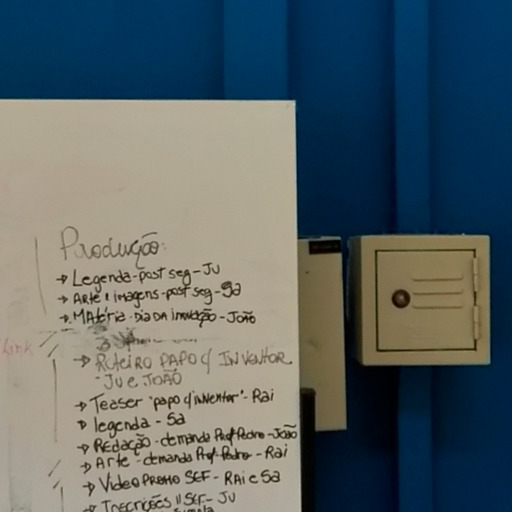 Produção:
→ Legenda - post seg - Ju
→ Arte e imagens - post seg - Sa
→ MAtéria - DIA DA inovação - JOÃO
Link
→ ROTEIRO PAPO C/ INVENTOR
JU e JOÃO
→ Teaser "papo c/ inventor" - Rai
→ legenda - Sa
→ REDAÇÃO - demanda Prof Pedro - João
→ Arte - demanda Prof. Pedro - Rai
→ Video PROMO SEF - RAI e Sa
→ Inscrições SEF - JU